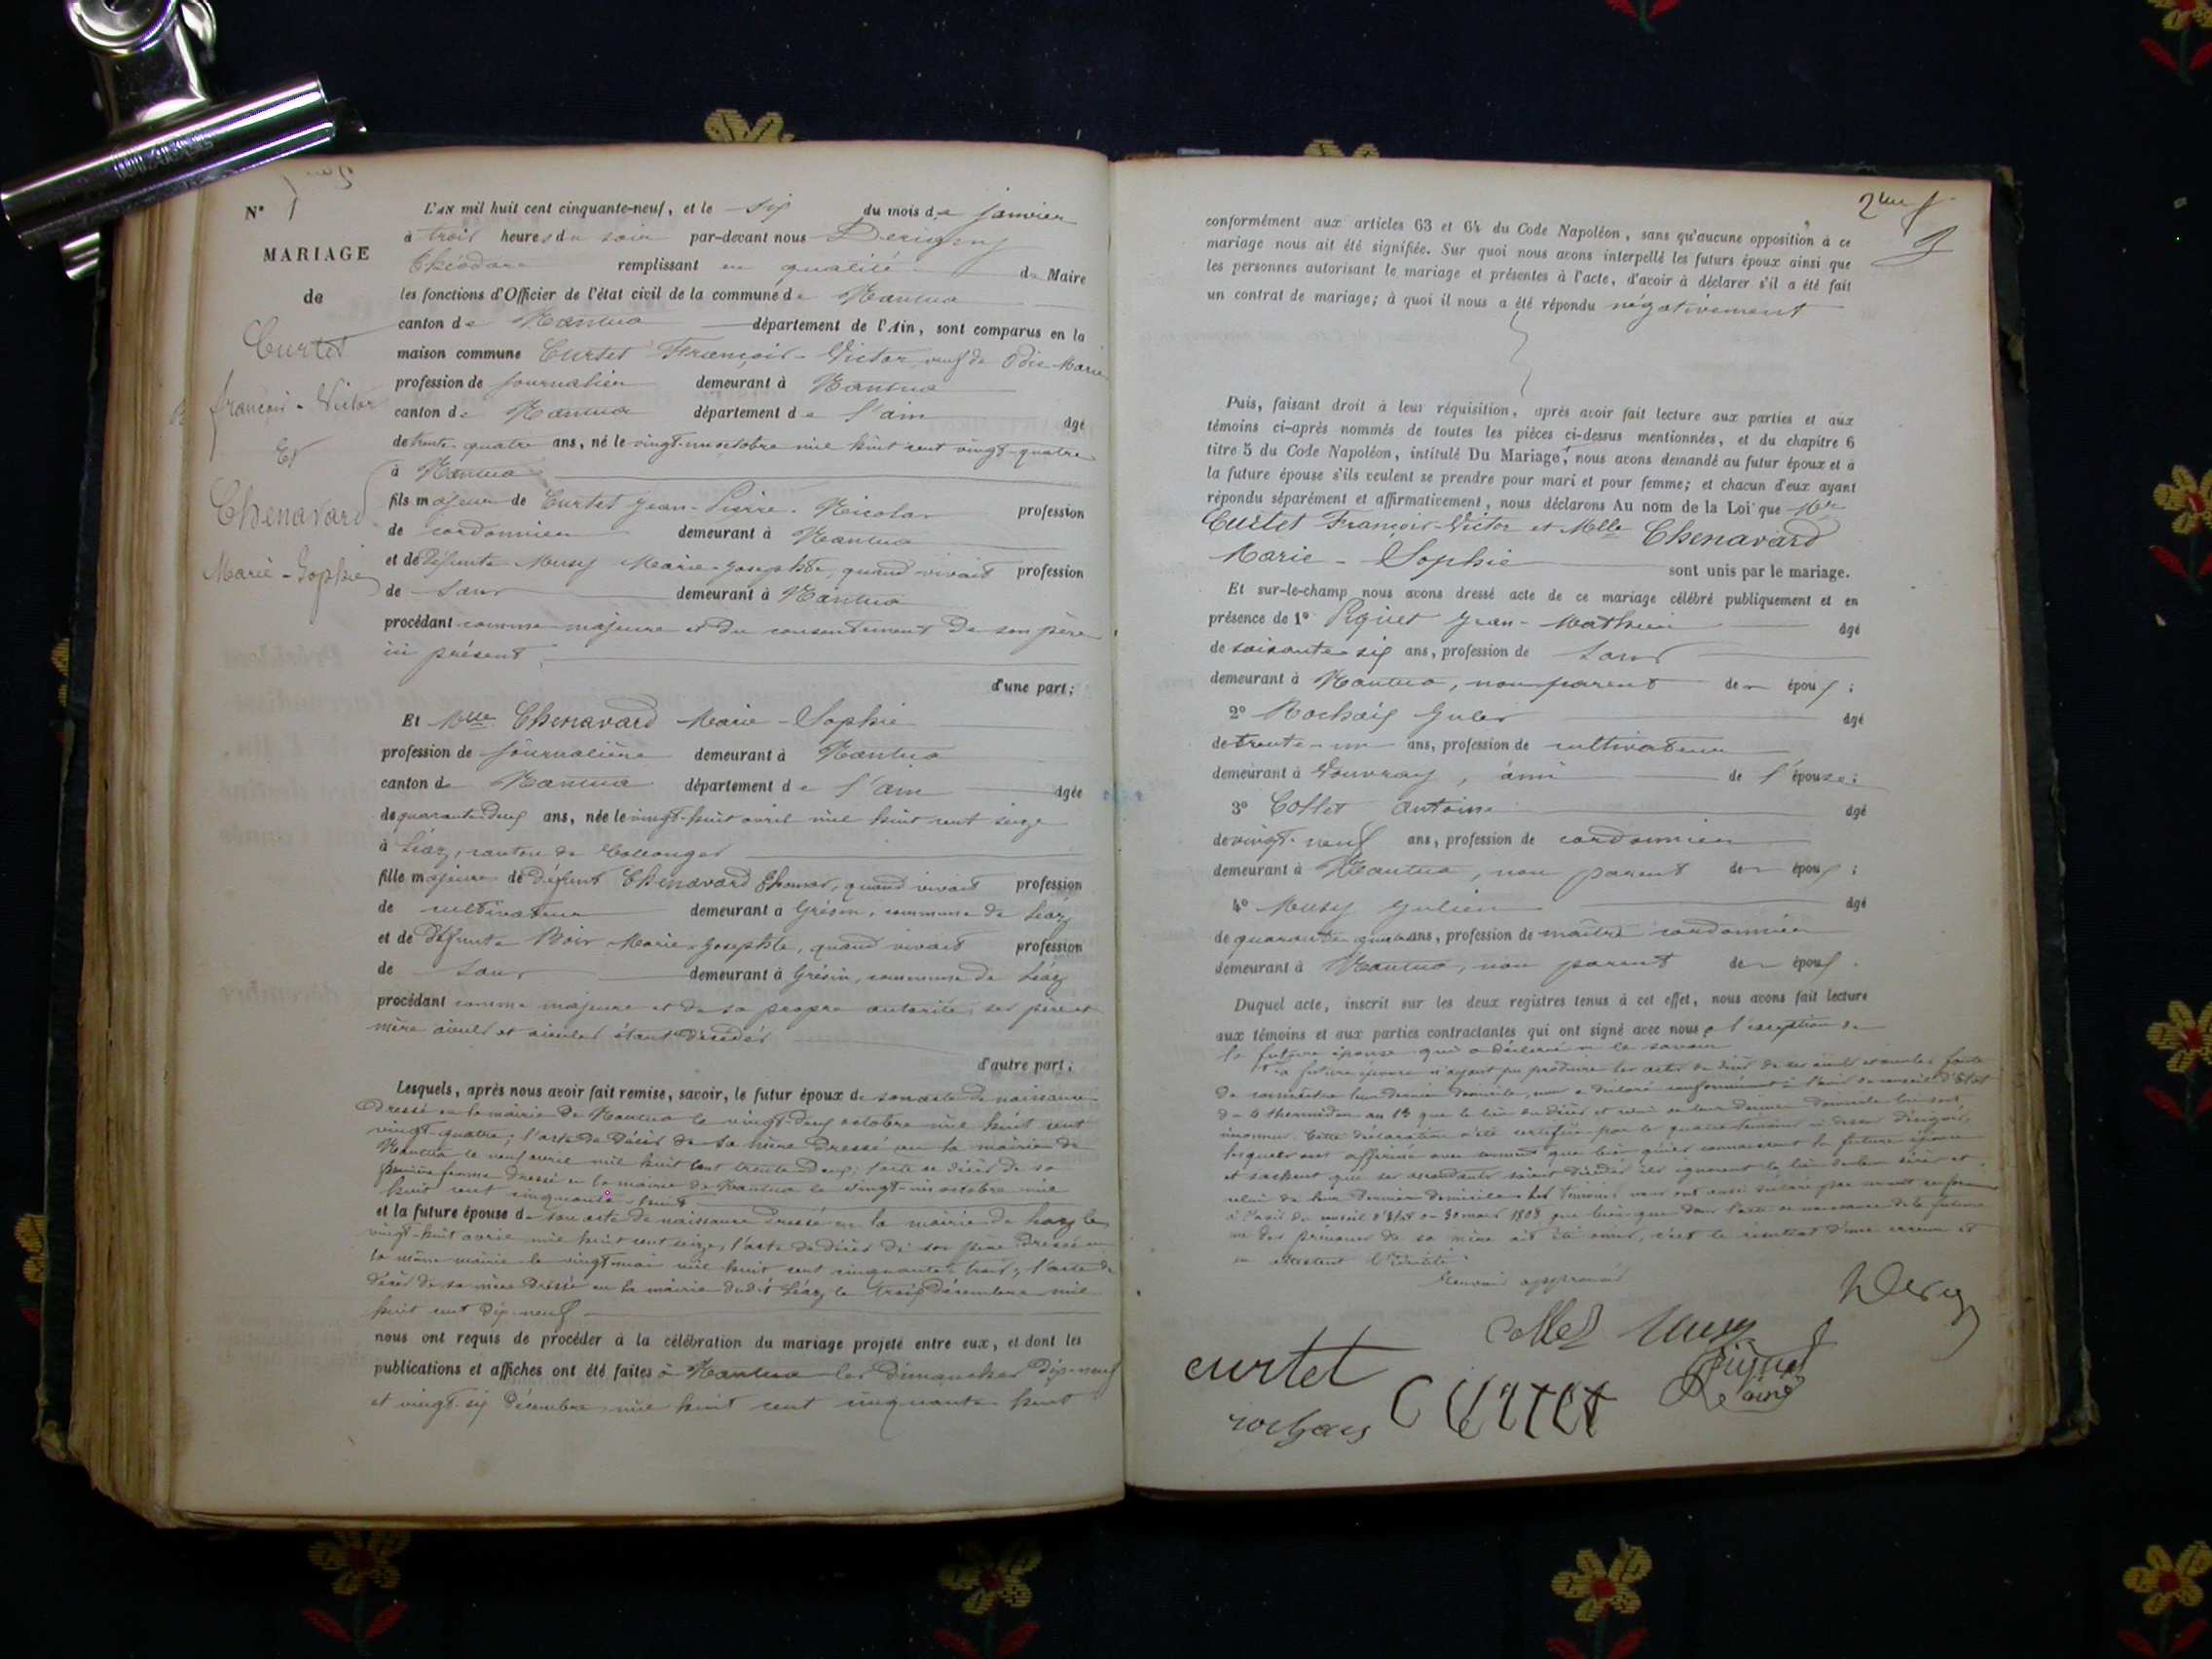 N° 1
MARIAGE
de
Curtet
françois-Victor
Et
Chenavard
Marie-Sophie
L'AN mil huit cent cinquante-neuf, et le six du mois de janvier
à trois heures du soir par-devant nous Derigny
Théodore remplissant en qualité de Maire
les fonctions d'Officier de l'état civil de la commune de Nantua
canton de Nantua département de l'Ain, sont comparus en la
maison commune Curtet François-Victor, veuf de Odie Marie
profession de journalier demeurant à Nantua
canton de Nantua département de l'ain âgé
de trente-quatre ans, né le vingt-un octobre mil huit cent vingt-quatre
à Nantua
fils majeur de Curtet Jean-Pierre-Nicolas profession
de cordonnier demeurant à Nantua
et de défunte Musy Marie-Josephte, quand vivait profession
de sans demeurant à Nantua
procédant comme majeure et du consentement de son père
ici présent
d'une part;
Et Mlle Chenavard Marie-Sophie
profession de journalière demeurant à Nantua
canton de Nantua département de l'ain âgée
de quarante-deux ans, née le vingt-huit avril mil huit cent seize
à Léaz, canton de Collonges
fille majeure de défunt Chenavard Thomas, quand vivait profession
de cultivateur demeurant à Grésin, commune de Léaz
et de défunte Noir Marie-Josephte, quand vivait profession
de sans demeurant à Grésin, commune de Léaz
procédant comme majeure et de sa propre autorité, ses père et
mère aïeuls et aïeules étant décédés
d'autre part;
Lesquels, après nous avoir fait remise, savoir, le futur époux de son acte de naissance
dressé en la mairie de Nantua le vingt-deux octobre mil huit cent
vingt-quatre; l'acte de décès de sa mère dressé en la mairie de
Nantua le neuf avril mil huit cent trente deux; l'acte de décès de sa
première femme dressé en la mairie de Nantua le vingt-un octobre mil
huit cent cinquante-huit
et la future épouse de son acte de naissance dressé en la mairie de Léaz le
vingt-huit avril mil huit cent seize, l'acte de décès de son père dressé en
la même mairie le vingt mai mil huit cent cinquante-trois; l'acte de
décès de sa mère dressé en la mairie dudit Léaz le trois décembre mil
huit cent dix-neuf
nous ont requis de procéder à la célébration du mariage projeté entre eux, et dont les
publications et affiches ont été faites à Nantua les dimanches dix-neuf
et vingt-six décembre mil huit cent cinquante-huit
conformément aux articles 63 et 64 du Code Napoléon, sans qu'aucune opposition à ce
mariage nous ait été signifiée. Sur quoi nous avons interpellé les futurs époux ainsi que
les personnes autorisant le mariage et présentes à l'acte, d'avoir à déclarer s'il a été fait
un contrat de mariage; à quoi il nous a été répondu négativement
Puis, faisant droit à leur réquisition, après avoir fait lecture aux parties et aux
témoins ci-après nommés de toutes les pièces ci-dessus mentionnées, et du chapitre 6
titre 5 du Code Napoléon, intitulé Du Mariage, nous avons demandé au futur époux et à
la future épouse s'ils veulent se prendre pour mari et pour femme; et chacun d'eux ayant
répondu séparément et affirmativement, nous déclarons Au nom de la Loi que Mr
Curtet François-Victor et Melle Chenavard
Marie-Sophie sont unis par le mariage.
Et sur-le-champ nous avons dressé acte de ce mariage célébré publiquement et en
présence de 1° Piquet Jean-Mathieu âgé
de soixante-six ans, profession de sans
demeurant à Nantua, non parent des époux;
2° Rochaix Jules âgé
de trente-un ans, profession de cultivateur
demeurant à Vouvray, ami de l'épouse;
3° Collet Antoine âgé
de vingt-neuf ans, profession de cordonnier
demeurant à Nantua, non parent des époux;
4° Musy Julien âgé
de quarante quatre ans, profession de maître cordonnier
demeurant à Nantua, non parent des époux.
Duquel acte, inscrit sur les deux registres tenus à cet effet, nous avons fait lecture
aux témoins et aux parties contractantes qui ont signé avec nous à l'exception de
la future épouse qui a déclaré ne le savoir
La future épouse n'ayant pu produire les actes de décès de ses aïeuls et aïeules faute
de connaître leur dernier domicile, nous a déclaré conformément à l'avis du conseil d'État
du 4 thermidor an 13 que le lieu du décès et celui de leur dernier domicile lui sont
inconnus. Cette déclaration a été certifiée par les quatre témoins ci-dessus désignés,
lesquels ont affirmé avec serment que bien qu'ils connaissent la future épouse
et sachent que ses ascendants soient décédés ils ignorent le lieu de leur décès et
celui de leur dernier domicile. Les témoins nous ont aussi déclaré par serment conformément
à l'avis du conseil d'État du 30 mars 1808 que bien que dans l'acte de naissance de la future
un des prénoms de sa mère ait été omis, c'est le résultat d'une erreur et
en attestent l'identité.
Renvoi approuvé
Collet Musy Derigny
curtet Piquet
l'ainé
rochaix CURTET